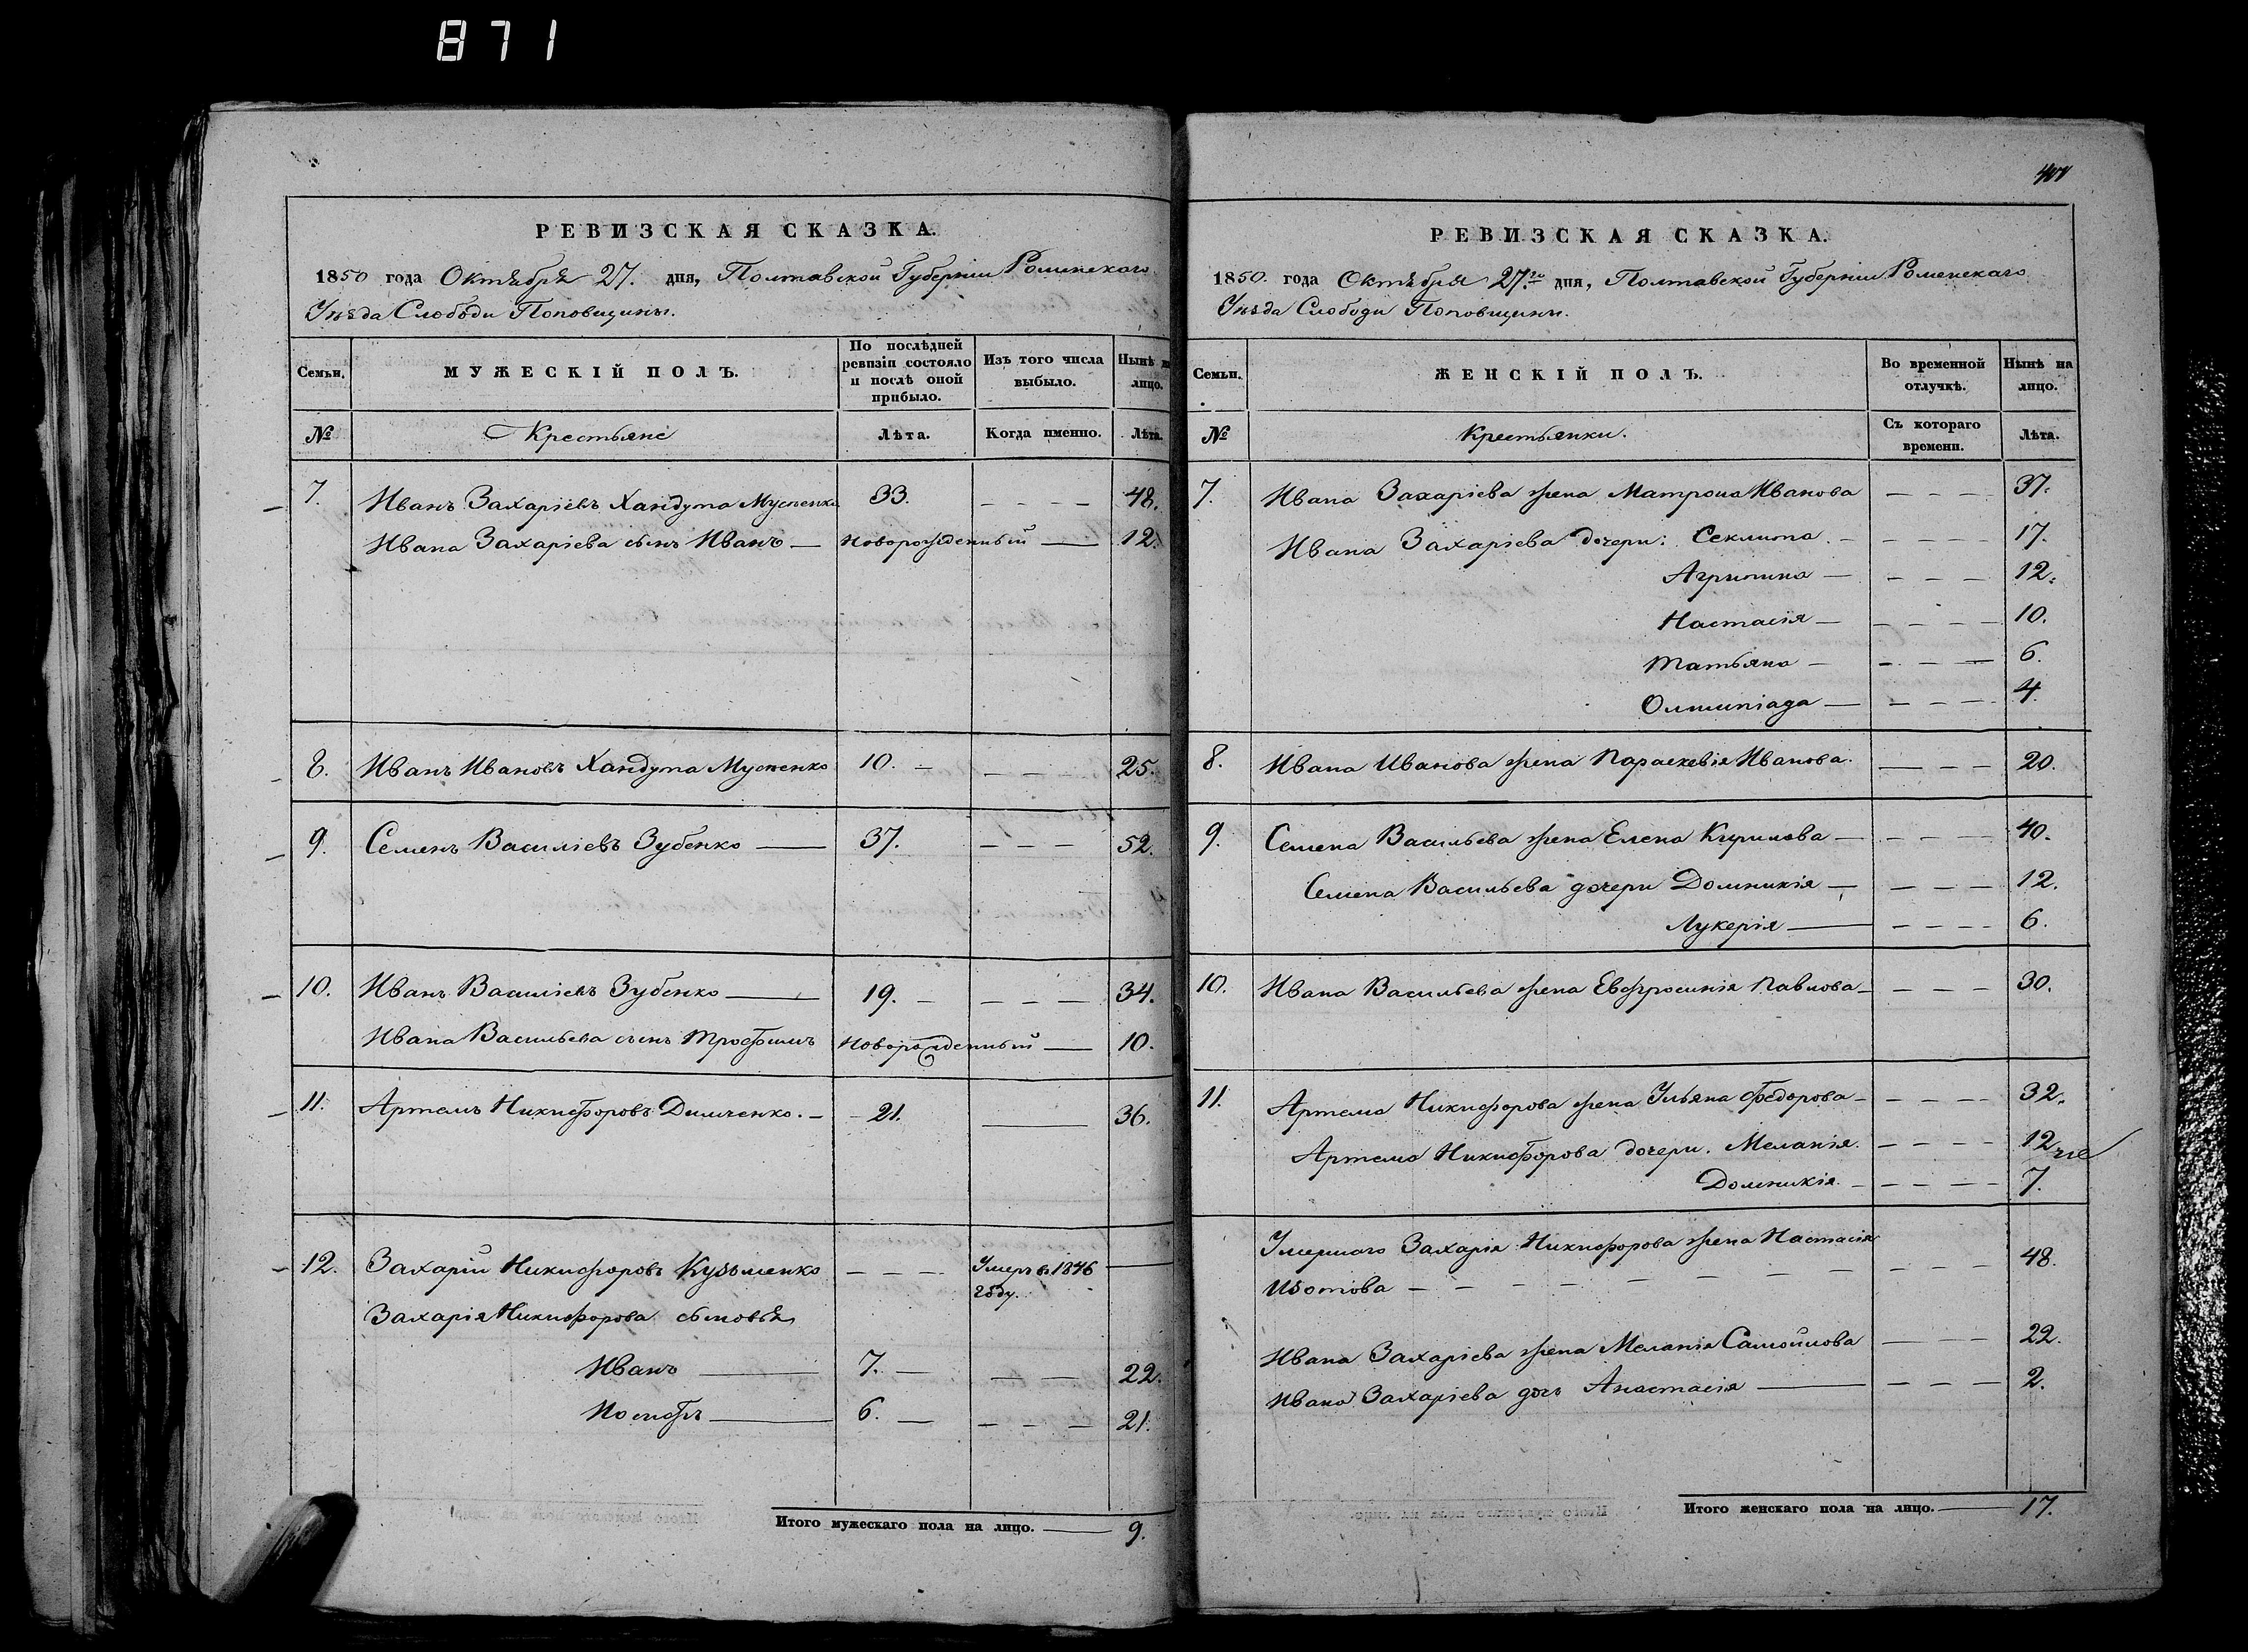 871
РЕВИЗСКАЯ СКАЗКА.
1850 года Октября 27. дня, Полтавской Губерніи Роменскаго
Уѣзда Слободи Поповщины.
Семьи. МУЖЕСКІЙ ПОЛЪ. По послѣдней ревизіи состояло и послѣ оной прибыло. Изъ того числа выбыло. Нынѣ на лицо.
№ Крестьяне Лѣта. Когда именно. Лѣта.
7. Иванъ Захаріевъ Хандута Мусиенко 33. 48.
Ивана Захаріева сынъ Иванъ новорожденный 12.
8. Иванъ Ивановъ Хандута Мусиенко 10. 25.
9. Семенъ Василіевъ Зубенко 37. 52.
10. Иванъ Василіевъ Зубенко 19. 34.
Ивана Васильева сынъ Трофимъ новорожденный 10.
11. Артемъ Никифоровъ Димченко. 21. 36.
12. Захарій Никифоровъ Кузьменко Умеръ в 1846 году.
Захарія Никифорова сыновья
Иванъ 7. 22.
Иосифъ 6. 21.
Итого мужескаго пола на лицо. 9.
РЕВИЗСКАЯ СКАЗКА.
1850. года Октября 27.го дня, Полтавской Губерніи Роменскаго
Уѣзда Слободи Поповщины.
Семьи. ЖЕНСКІЙ ПОЛЪ. Во временной отлучкѣ. Нынѣ на лицо.
№ Крестьянки. Съ котораго времени. Лѣта.
7. Ивана Захаріева жена Матрона Иванова 37.
Ивана Захаріева дочери: Секлита 17.
Агрипина 12.
Настасія 10.
Татьяна 6.
Олимпіада 4.
8. Ивана Иванова жена Параскевія Иванова. 20.
9. Семена Васильева жена Елена Кирилова 40.
Семена Васильева дочери Домникія 12.
Лукерія 6.
10. Ивана Васильева жена Евфросинія Павлова 30.
11. Артема Никифорова жена Ульяна Федорова 32.
Артема Никифорова дочери. Меланія. 12
Домникія. 7.
Умершаго Захарія Никифорова жена Настасія
Изотова 48.
Ивана Захаріева жена Меланія Самойлова 22.
Ивана Захаріева дочь Анастасія 2.
Итого женскаго пола на лицо. 17.